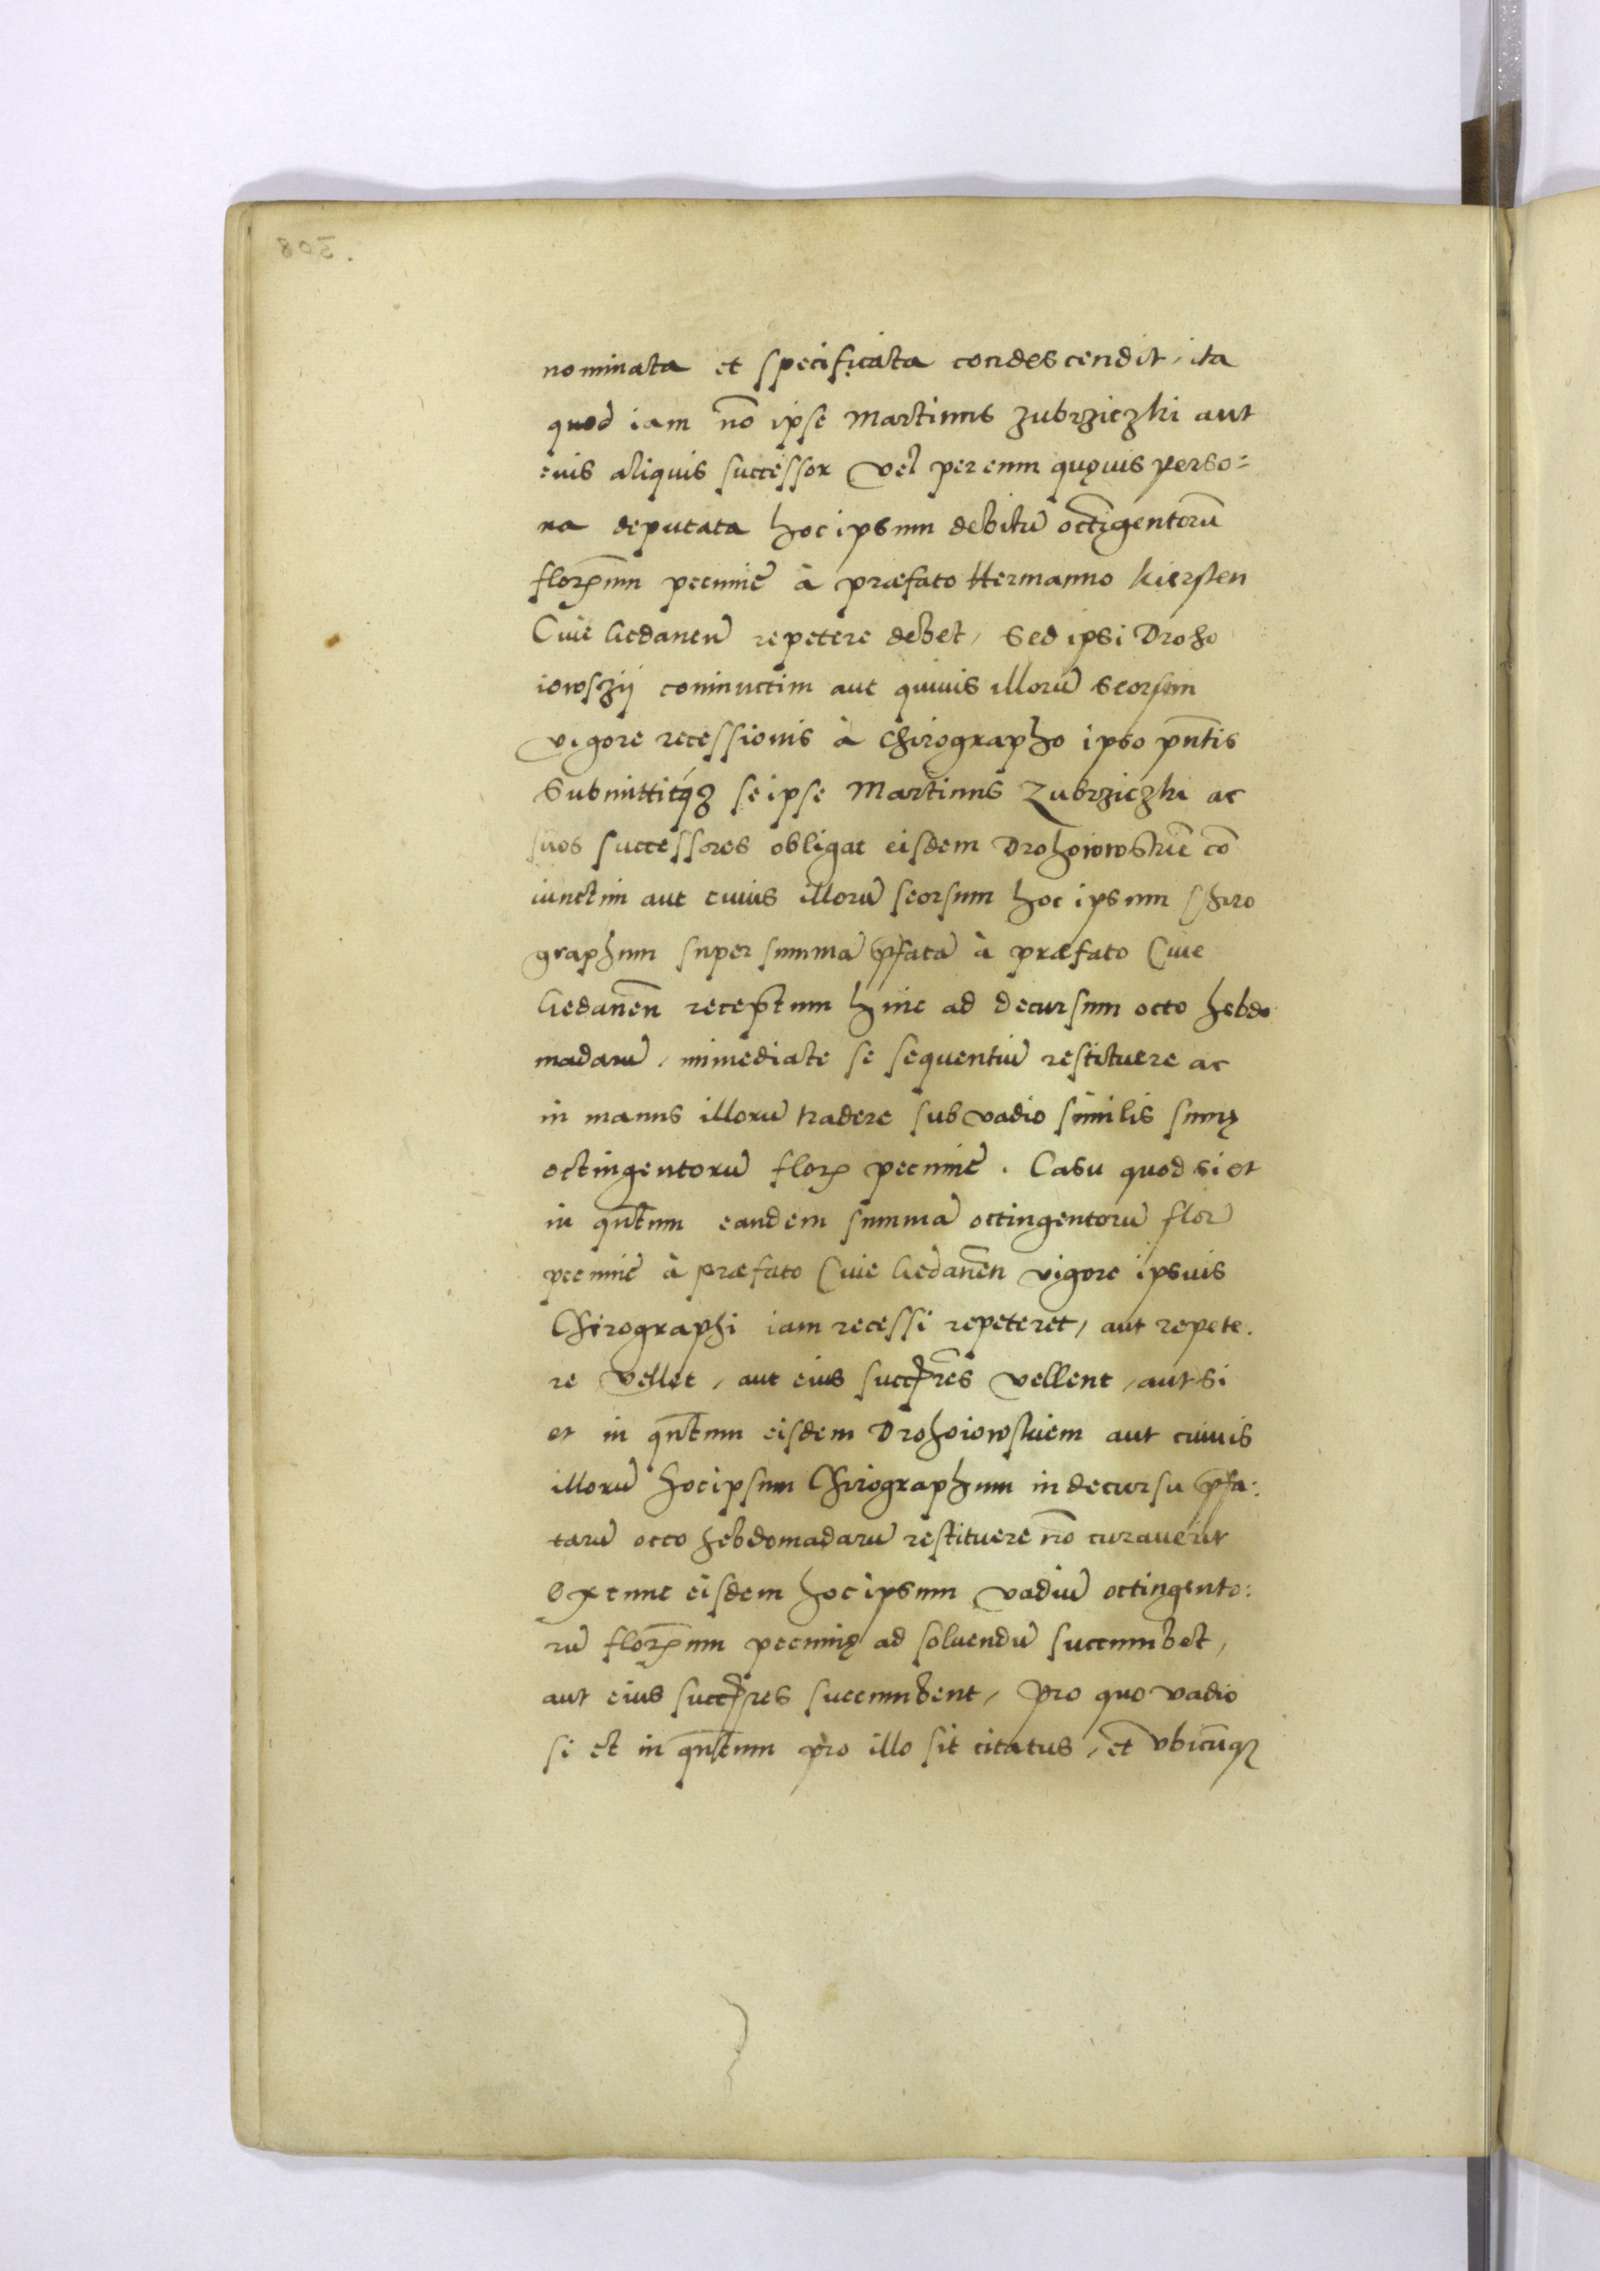 nominata et specificata condescendit, ita
quod iam nõ ipse Martinus Zubrziczki aut
eius aliquis successor vel per eum quęuis perso=
na deputata hoc ipsum debitũ octingentorũ
florenum pecuniẽ à præfato Hermanno Kiersten
Ciue Gedanen̄ repetere debet, sed ipsi Droho
iowszij coniunctim aut quiuis illorũ seorsim
vigore recessionis à chirographo ipso pn̄tis
Submittitq́ʒ se ipse Martinus Zubrziczki ac
suos successores obligat eisdem Drohoiowskiẽ cõ
iunctim aut cuius illorũ seorsum hoc ipsum Chiro
graphum super summã p̄fatã à præfato Ciue
Gedanen̄ receptum hinc ad decursum octo hebdo
madarũ, immediate se sequentiũ restituere ac
in manus illorũ tradere sub vadio similis sum̄ę
octingentorũ flor. pecuniẽ. Casu quod si et
in qn̄tum eandem summã octingentorũ flor̃
pecuniẽ à præfato Ciue Gedanen̄ vigore ipsius
Chirographi iam recessi repeteret, aut repete.
re vellet, aut eius succr̃es vellent, aut si
et in qn̄tum eisdem Drohoiowskiem aut cuiuis
illorũ hoc ipsum Chirographum in decursu p̄fa:
tarũ octo hebdomadarũ restituere nõ curauerit
Ex tunc eisdem hoc ipsum vadiũ octingento:
rũ florenum pecunię ad soluendũ succumbet,
aut eius succr̃es succumbent, Pro quo vadio
si et in qn̄tum pro illo sit citatus, et vbicunqʒ